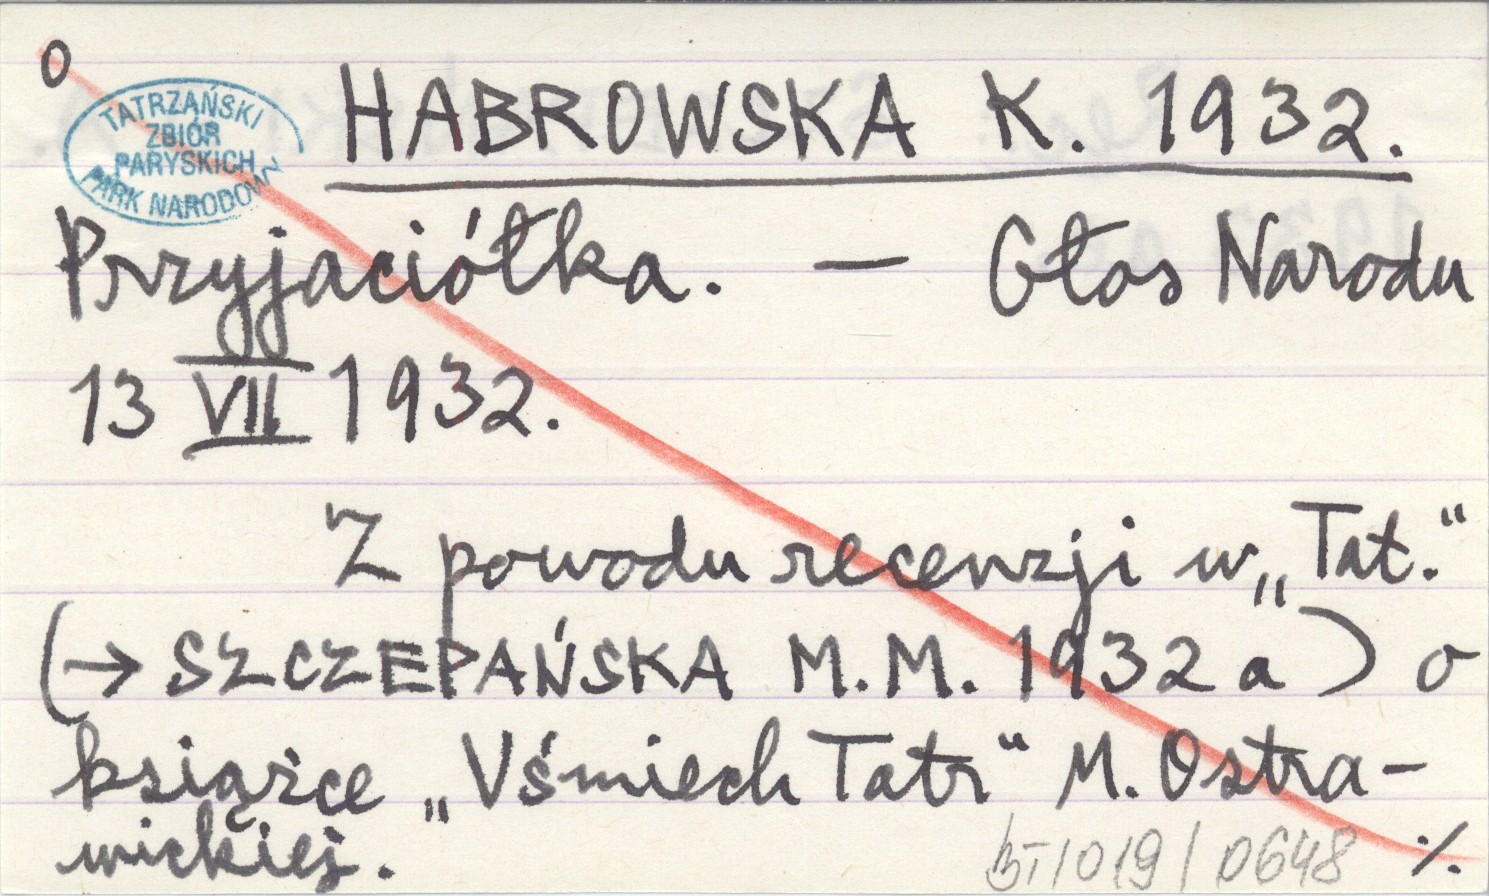 O
TATRZAŃSKI
ZBIÓR
PARYSKICH
PARK NARODOWY
HABROWSKA K. 1932.
Przyjaciółka. — Głos Narodu
13 VII 1932.
Z powodu recenzji w „Tat.“
(→ SZCZEPAŃSKA M.M. 1932 a) o
książce „Uśmiech Tatr“ M. Ostra-
wickiej.
BT/019/0648
./.